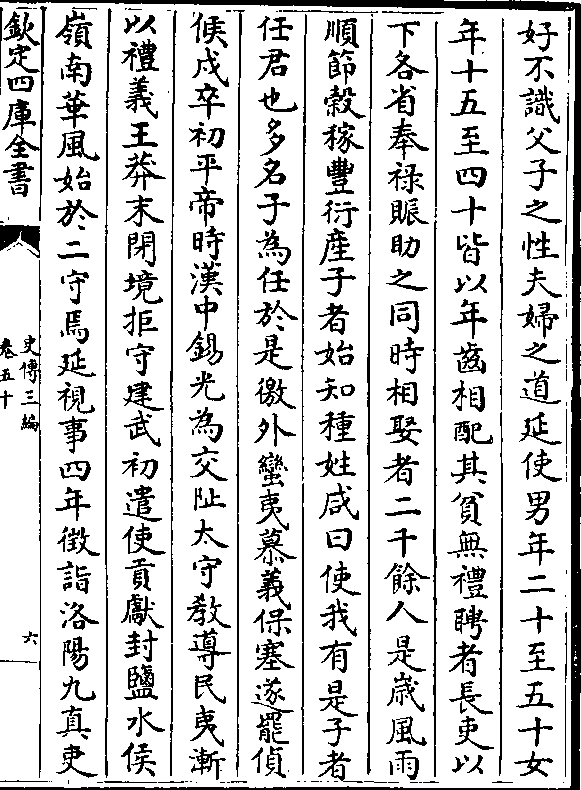 好不識父子之性夫婦之道延使男年二十至五十女
年十五至四十皆以年齒相配其貧無禮聘者長吏以
下各省奉祿賑助之同時相娶者二千餘人是歲風雨
順節穀稼豐衍產子者始知種姓咸曰使我有是子者
任君也多名子為任於是徼外蠻夷慕義保塞遂罷偵
候戍卒初平帝時漢中錫光為交阯太守教導民夷漸
以禮義王莽末閉境拒守建武初遣使貢獻封鹽水侯
嶺南華風始於二守焉延視事四年徵詣洛陽九真吏
欽定四庫全書
史傳三編
卷五十
六